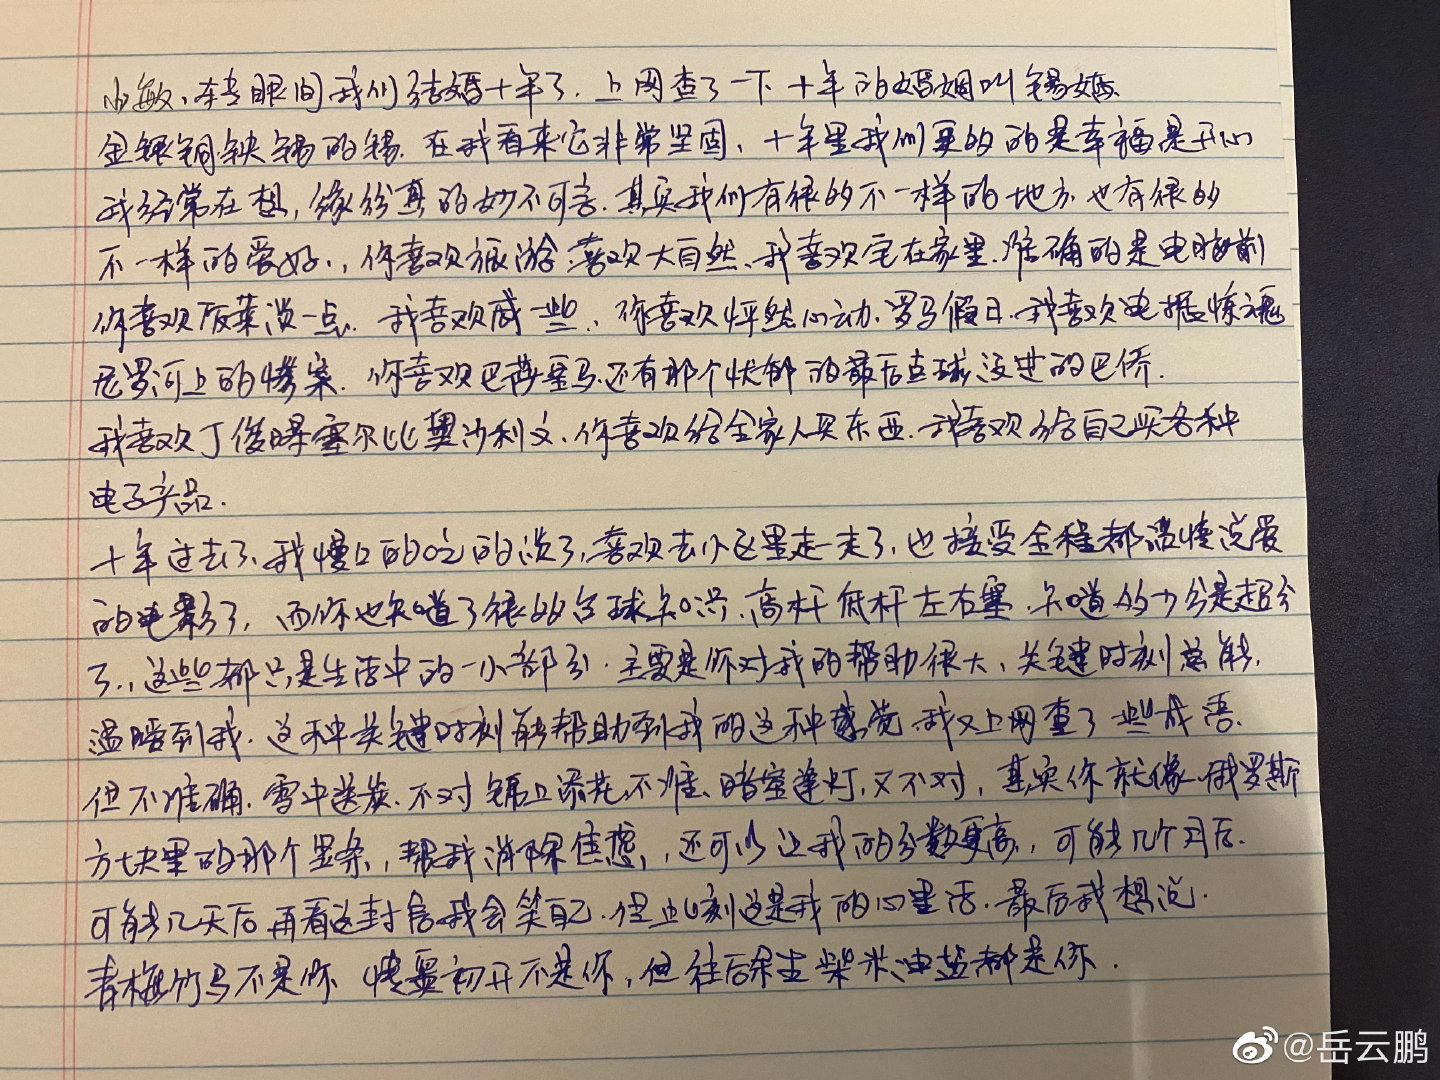 小敏、转眼间我们结婚十年了.上网查了一下十年的婚姻叫锡婚
金银铜铁锡的锡.在我看来它非常坚固、十年里我们更多的是幸福是开心
我经常在想,缘份真的妙不可言.其实我们有很多不一样的地方也有很多
不一样的爱好.,你喜欢旅游喜欢大自然、我喜欢宅在家里.准确的是电脑前
你喜欢饭菜淡一点.我喜欢咸一些、你喜欢怦然心动、罗马假日.我喜欢电据惊魂
尼罗河上的惨案.你喜欢巴萨皇马.还有那个忧郁的最后点球没进的巴侨.
我喜欢丁俊晖塞尔比奥沙利文、你喜欢给全家人买东西.我喜欢给自己买各种
电子产品.
十年过去了、我慢口的吃的淡了,喜欢去小区里走一走了,也接受全程都温情说爱
的电影了,而你也知道了很多台球知识.高杆低杆左右塞、知道多少分是超分
了.,这些都只是生活中的一小部分.主要是你对我的帮助很大、关键时刻总能.
温暖到我.这种关键时刻能帮助到我的这种感觉.我又上网查了一些成语.
但不准确.雪中送炭.不对锦上添花.不准、暗室逢灯,又不对,其实你就像.俄罗斯
方块里的那个竖条,帮我消除焦虑,还可以让我的分数更高,可能几个月后.
可能几天后再看这封信我会笑自己.但此刻这是我的心里话.最后我想说.
青梅竹马不是你情窦初开不是你,但往后余生柴米油盐都是你.
@岳云鹏